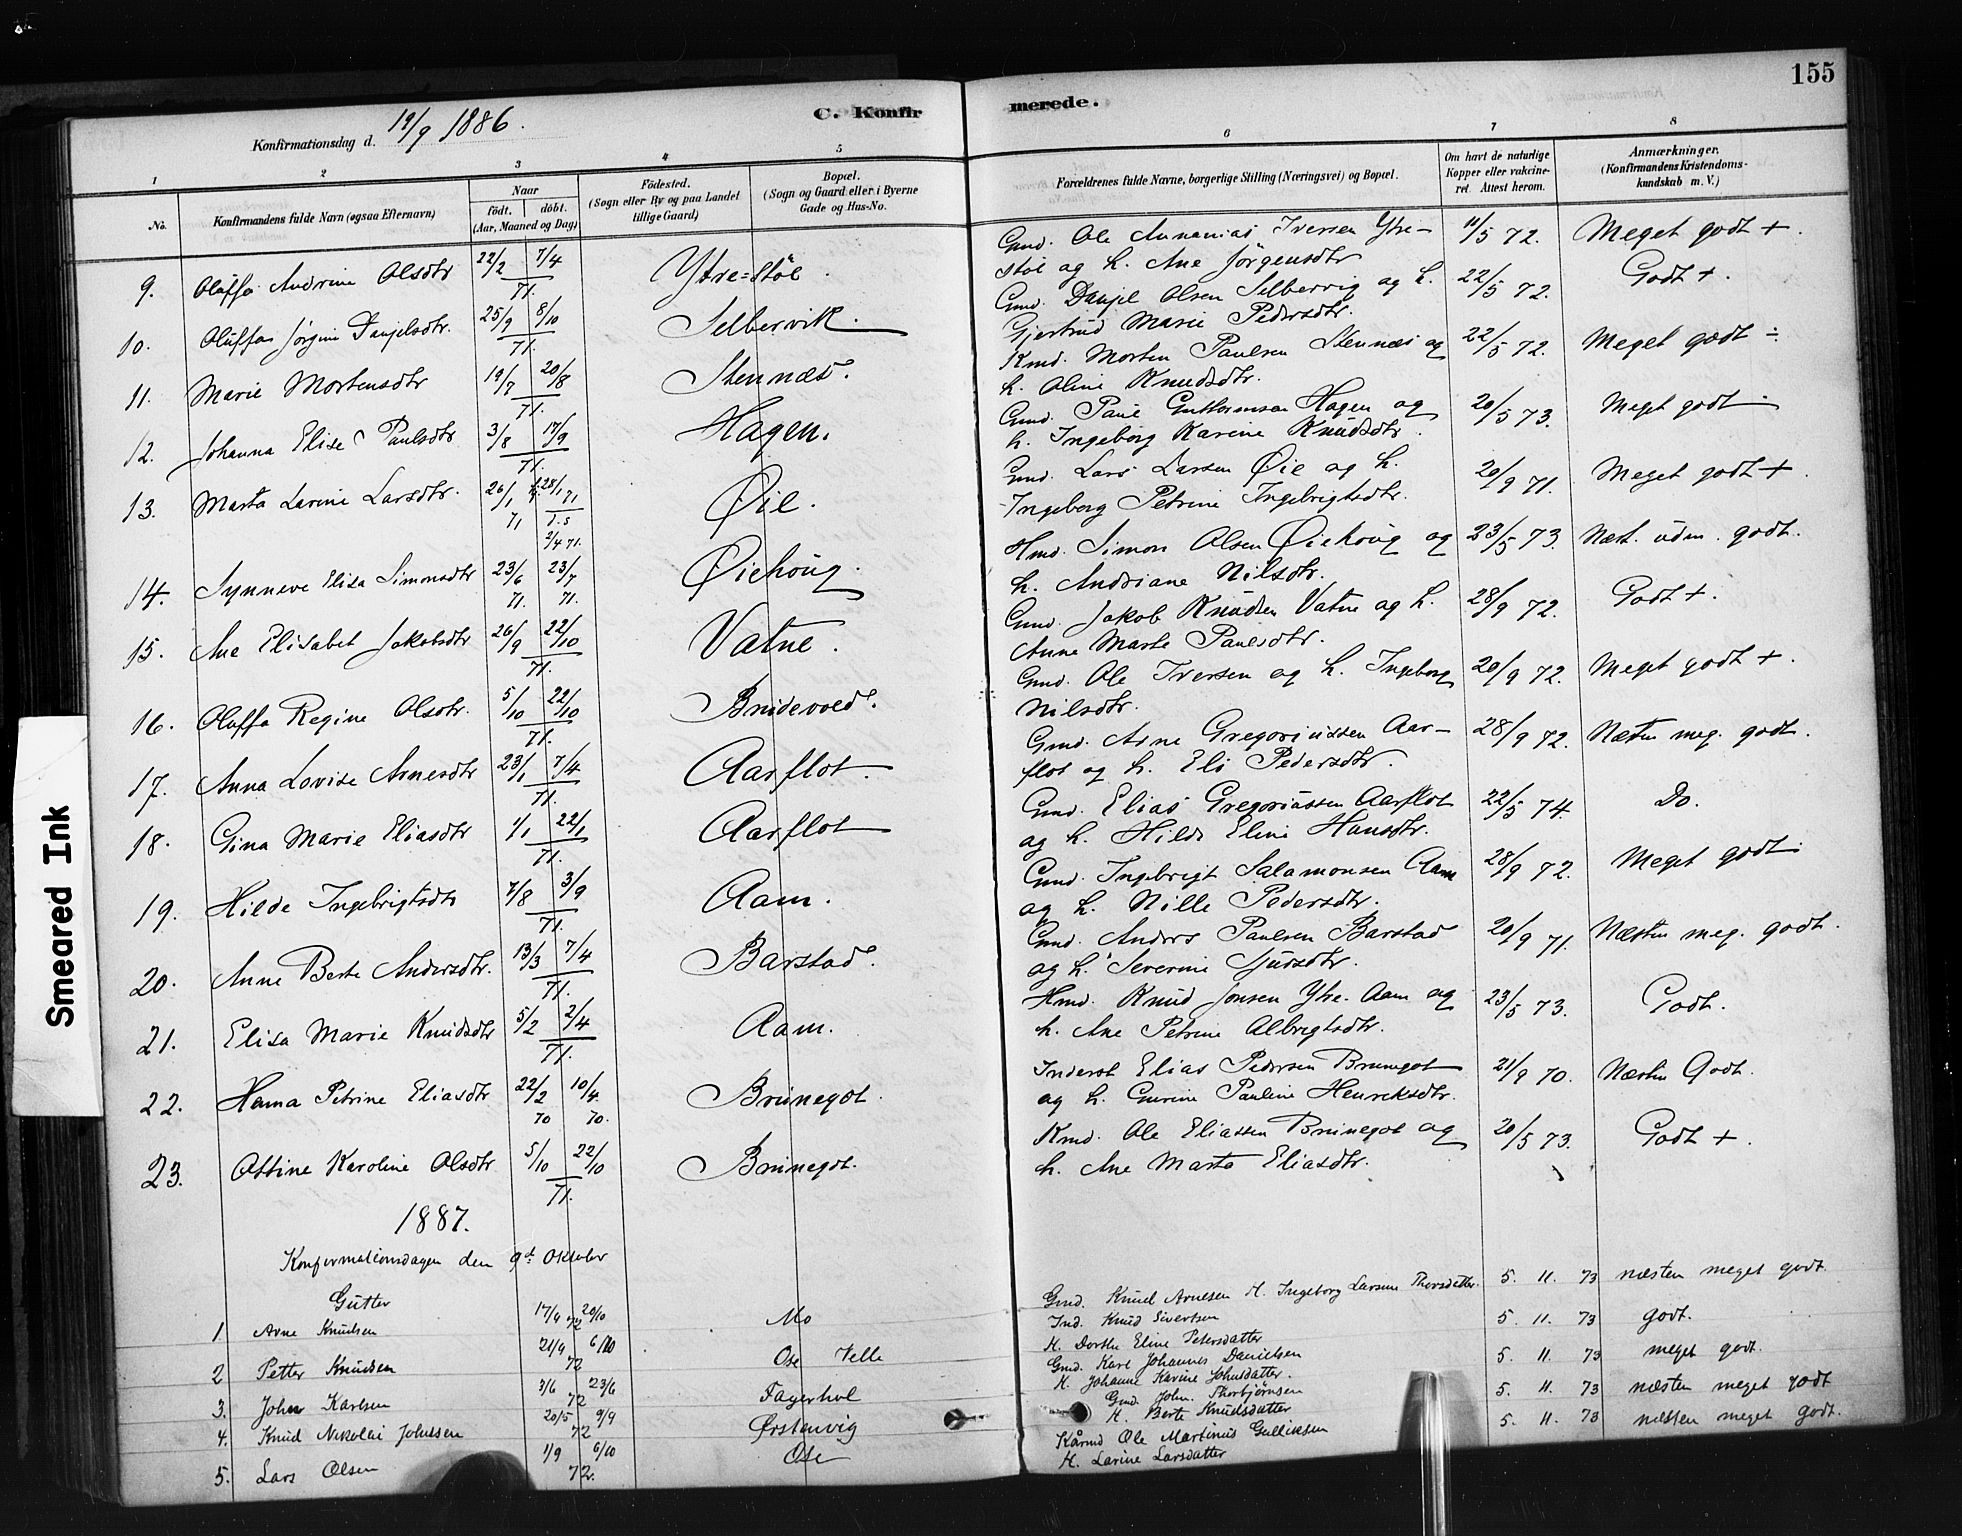 155
C. Konfirmerede.
Konfirmationsdag d. 19/9 1886.
1 2 3 4 5 6 7 8
No.
Konfirmandens fulde Navn (ogsaa Efternavn)
Naar
födt. döbt.
(Aar, Maaned og Dag)
Födested.
(Sogn eller By og paa Landet
tillige Gaard)
Bopæl.
(Sogn og Gaard eller i Byerne
Gade og Hus-No.
Forældrenes fulde Navne, borgerlige Stilling (Næringsvei) og Bopæl.
Om havt de naturlige
Kopper eller vakcine-
ret. Attest herom.
Anmærkninger.
(Konfirmandens Kristendoms-
kundskab m. V.)
9. Oluffa Andrine Olsdtr 22/2 7/4 71. Ytre=støl. Gmd. Ole Ananias Iversen Ytre-
støl og h. Ane Jörgensdtr 11/5 72. Meget godt +.
10. Oluffa Jörgine Danjelsdtr. 25/9 8/10 71. Selbervik. Gmd. Danjel Olsen Selbervig og h.
Gjertrud Marie Pedersdtr. 22/5 72. Godt +.
11. Marie Mortensdtr 19/7 20/8 71. Stennæs. Kmd. Morten Paulsen Stennæs og
h. Oline Knudsdtr. 22/5 72. Meget godt ÷
12. Johanna Elise Paulsdtr 3/8 17/9 71. Hagen. Gmd. Paul Guttormsen Hagen og
h. Ingeborg Karine Knudsdtr. 20/5 73. Meget godt
13. Marta Larine Larsdtr. 26/1 71 28/1 71 2/4 71. Øie. Gmd. Lars Larsen Øie og h.
Ingeborg Petrine Ingebrigtsdtr. 20/9 71. Meget godt +.
14. Synneve Elisa Simonsdtr 23/6 71. 23/7 71. Øiehoug. Hmd. Simon Olsen Øiehoug og
h. Andriane Nilsdtr. 23/5 73. Næst. udm. godt.
15. Ane Elisabet Jakobsdtr 26/9 22/10 71. Vatne. Gmd. Jakob Knudsen Vatne og h.
Anne Marte Paulsdtr. 28/9 72. Godt +.
16. Oluffa Regine Olsdtr. 5/10 22/10 71. Brudevoed. Gmd. Ole Iversen og h. Ingeborg
Nilsdtr. 20/9 72. Meget godt +.
17. Anna Lovise Arnesdtr 23/1 7/4 71. Aarflot. Gmd. Arne Gregoriussen Aar-
flot og h. Eli Pedersdtr. 28/9 72. Næsten meg. godt.
18. Gina Marie Eliasdtr 1/1 22/1 71. Aarflot Gmd. Elias Gregoriussen Aarflot
og h. Hilde Eline Hansdtr. 22/5 74. Do.
19. Hilde Ingebrigtsdtr 7/8 3/9 71. Aam. Gmd. Ingebrigt Salamonsen Aam
og h. Nille Pedersdtr. 28/9 72. Meget godt.
20. Anne Berte Andersdtr. 13/3 7/4 71. Barstad. Gmd. Anders Paulsen Barstad
og h. Severine Sjursdtr. 20/9 71. Næsten meg. godt.
21. Elisa Marie Knudsdtr 5/2 2/4 71. Aam. Hmd. Knud Jonsen Ytre-Aam og
h. Ane Petrine Albrigtsdtr. 23/5 73. Godt.
22. Hanna Petrine Eliasdtr 22/2 70 10/4 70. Brunegot. Inderst Elias Pedersen Brunegot
og h. Gurine Pauline Henriksdtr. 21/9 70. Næsten Godt.
23. Ottine Karoline Olsdtr 5/10 22/10 71. Brunegot. Kmd. Ole Eliassen Brunegot og
h. Ane Marta Eliasdtr. 20/5 73. Godt +.
1887.
Konfirmationsdagen den 9d Oktober
Gutter
1 Arne Knudsen 17/9 20/10 72 Mo Gmd. Knud Arnesen H. Ingeborg Larsine Thorsdatter 5. 11. 73 næsten meget godt.
2 Petter Knudsen 21/9 6/10 72 Ose Velle Ind. Knud Sivertsen
H. Dorthe Eline Petersdatter 5. 11. 73 godt.
3. John Karlsen 3/6 23/6 72 Fagerhol Gmd. Karl Johannes Danielsen
H. Johanne Karine Johnsdatter. 5. 11. 73 meget godt.
4. Knud Nikolai Johnsen 20/5 9/9 72 Ørstenvig Gmd. John. Thorbjørnsen
H. Berte Knudsdatter 5. 11. 73 næsten meget godt
5. Lars Olsen 1/9 6/10 72. Ose Kårmd Ole Martinus Gulliksen
H. Larine Larsdatter 5. 11. 73 næsten meget godt.
Smeared Ink